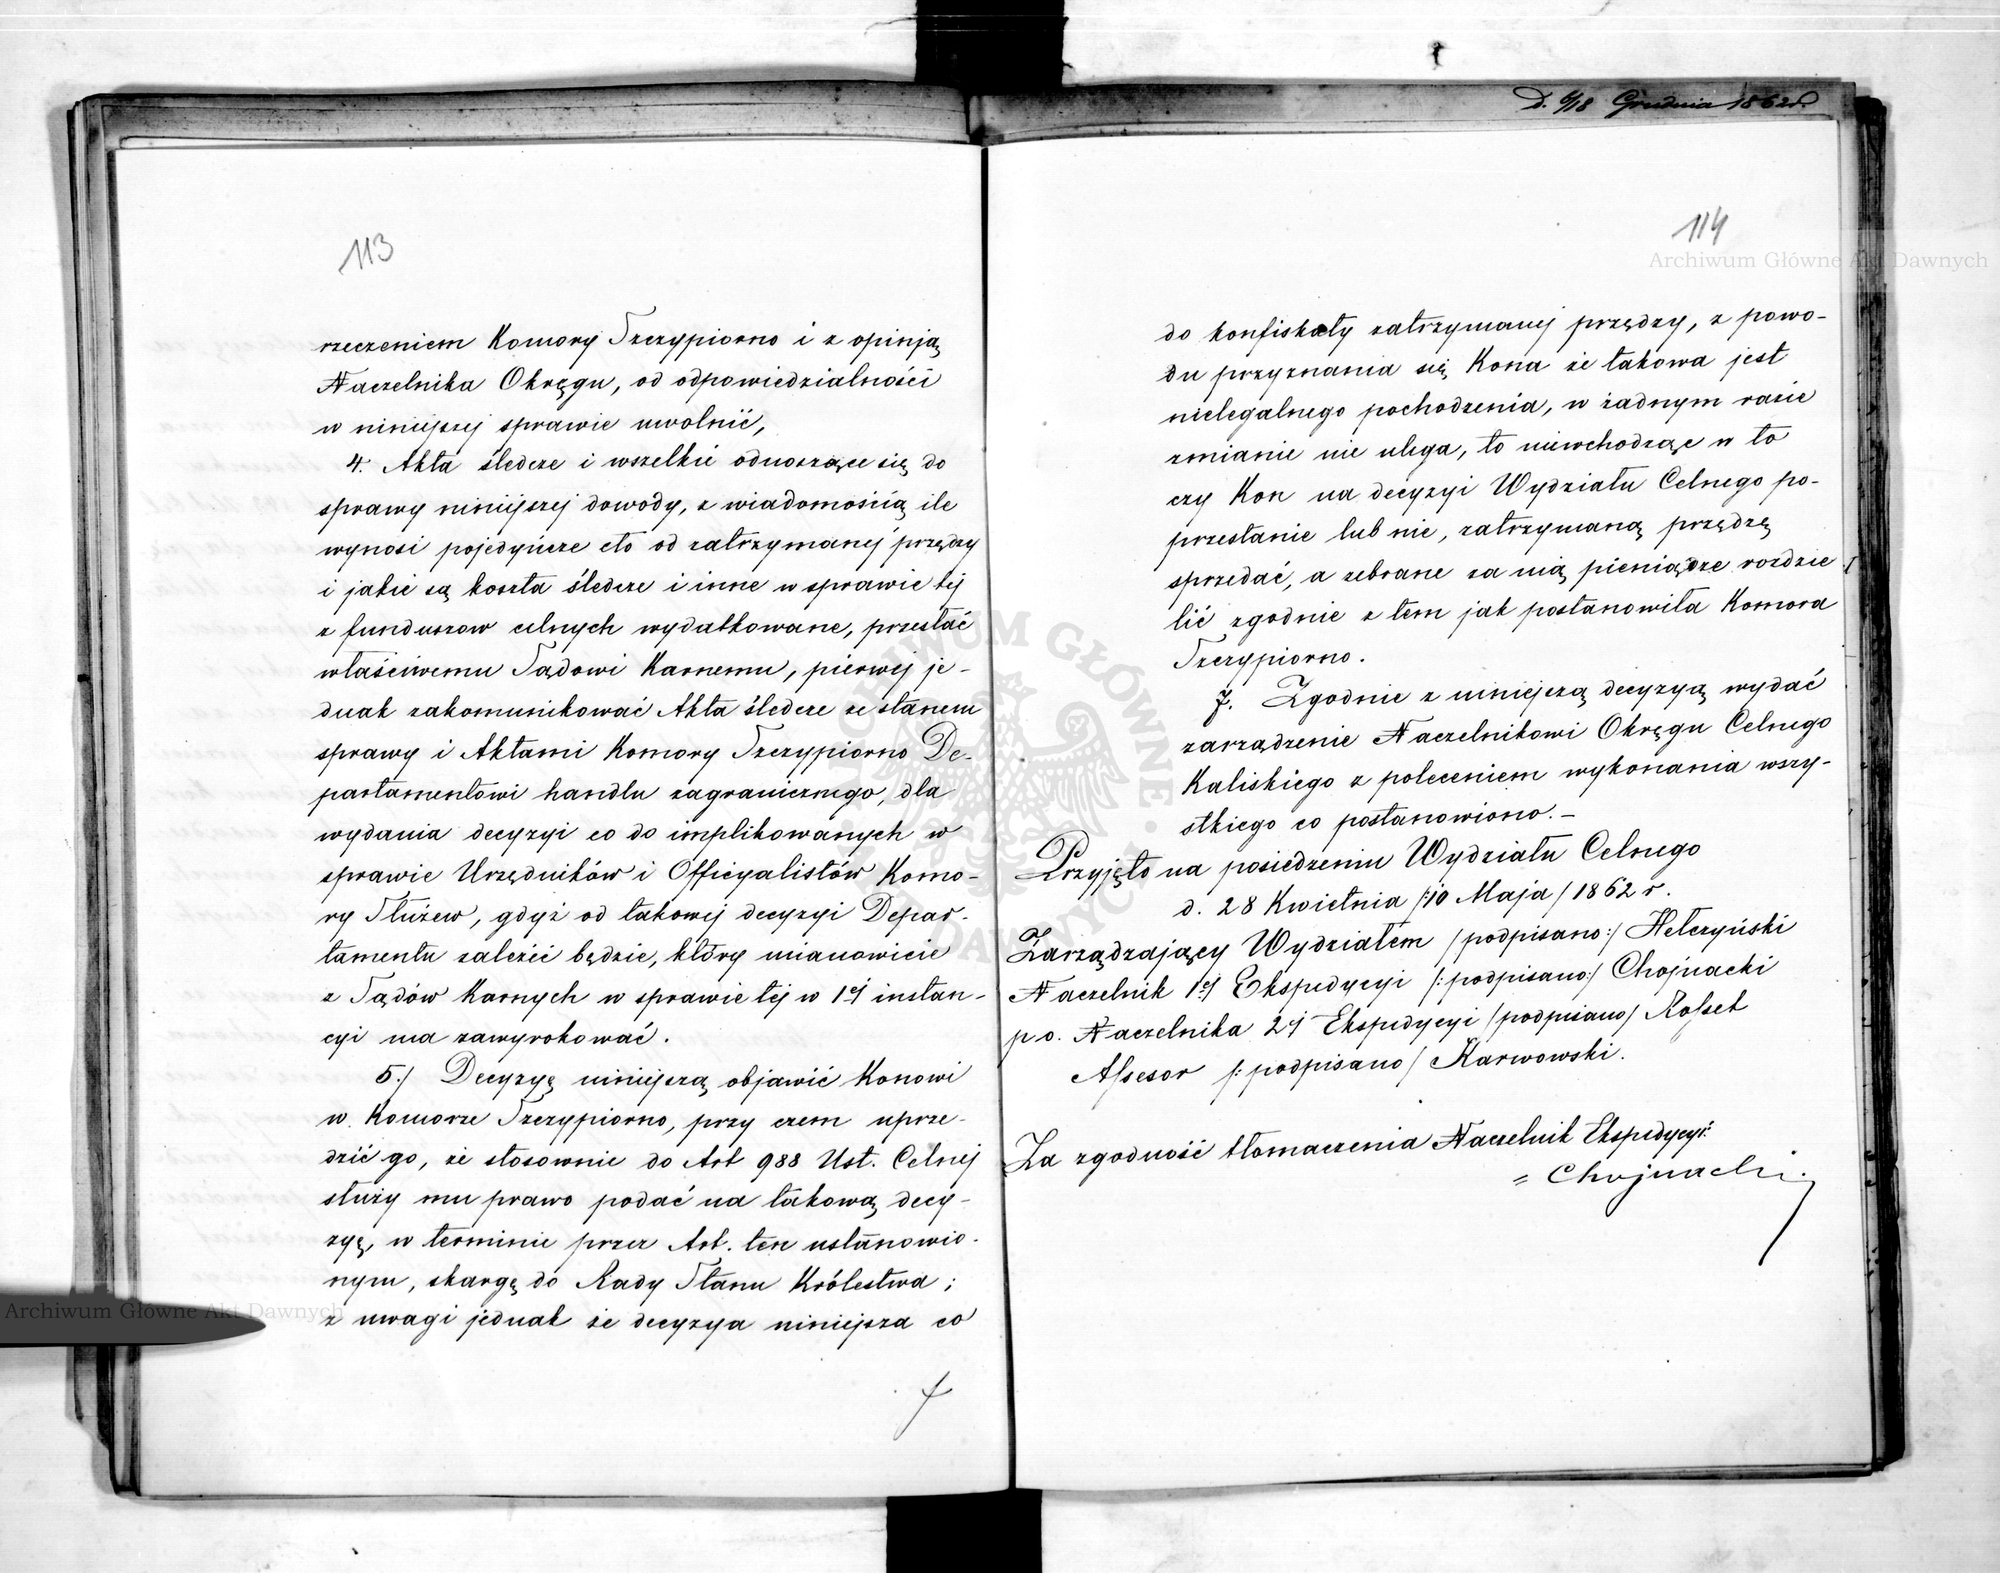 113
rzeczeniem Komory Szczypiorno i z opinją
Naczelnika Okręgu, od odpowiedzialności
w niniejszej sprawie uwolnić,
4. Akta śledcze i wszelkie odnoszące się do
sprawy niniejszej dowody, z wiadomością ile
wynosi pojedyńcze cło od zatrzymanej przędzy
i jakie są koszta śledcze i inne w sprawie tej
z funduszow celnych wydatkowane, przesłać
właściwemu Sądowi Karnemu, pierwej je-
dnak zakomunikować Akta śledcze ze stanem
sprawy i Aktami Komory Szczypiorno De-
partamentowi handlu zagranicznego, dla
wydania decyzyi co do implikowanych w
sprawie Urzędników i Officyalistów Komo-
ry Służew, gdyż od takowej decyzyi Depar-
tamentu zależeć będzie, który mianowicie
z Sądów Karnych w sprawie tej w 1ej instan-
cyi ma zawyrokować.
5./ Decyzyę niniejszą objawić Konowi
w Komorze Szczypiorno, przy czem uprze-
dzić go, że stosownie do Art 988 Ust. Celnej
służy mu prawo podać na takową decy-
zyę, w terminie przez Art. ten ustanowio-
nym, skargę do Rady Stanu Królestwa;
z uwagi jednak że decyzya niniejsza co
D. 6/18 Grudnia 1862 r.
114
do konfiskaty zatrzymanej przędzy, z powo-
du przyznania się Kona że takowa jest
nielegalnego pochodzenia, w żadnym razie
zmianie nie ulega, to niewchodząc w to
czy Kon na decyzyi Wydziału Celnego po-
przestanie lub nie, zatrzymaną przędzę
sprzedać, a zebrane za nią pieniądze rozdzie
lić zgodnie z tem jak postanowiła Komora
Szczypiorno.
7. Zgodnie z niniejszą decyzyą wydać
zarządzenie Naczelnikowi Okręgu Celnego
Kaliskiego z poleceniem wykonania wszy-
stkiego co postanowiono.–
Przyjęto na posiedzeniu Wydziału Celnego
d. 28 Kwietnia /:10 Maja/ 1862 r.
Zarządzający Wydziałem /podpisano:/ Hełczyński
Naczelnik 1ej Ekspedycyi /:podpisano:/ Chojnacki
p o. Naczelnika 2ej Ekspedycyi /podpisano/ Rosset
Assesor /:podpisano/ Karwowski.
Za zgodność tłomaczenia Naczelnik Ekspedycyi:
= Chojnacki.
Archiwum Główne Akt Dawnych
Archiwum Główne Akt Dawnych
ARCHIWUM GŁÓWNE AKT DAWNYCH